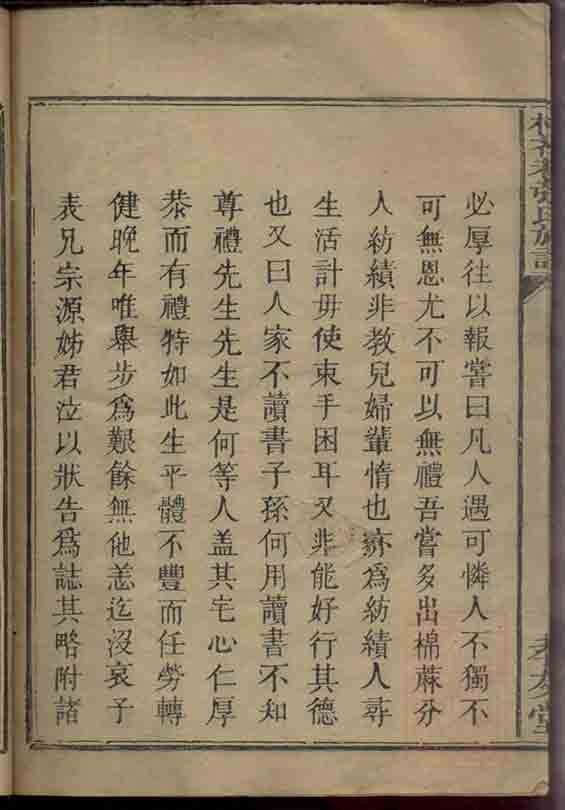 必厚往以報嘗曰凡人遇可憐人不獨不
可無恩尤不可以無禮吾嘗多出棉蔴分
人紡績非教兒婦輩惰也亦為紡績人尋
生活計毋使束手困耳又非能好行其德
也又曰人家不讀書子孫何用讀書不知
尊禮先生先生是何等人盖其宅心仁厚
恭而有禮特如此生平體不豐而任勞轉
健晚年唯舉步爲艱餘無他恙迄沒哀子
表兄宗源姊君泣以狀告爲誌其略附諸
孝友堂